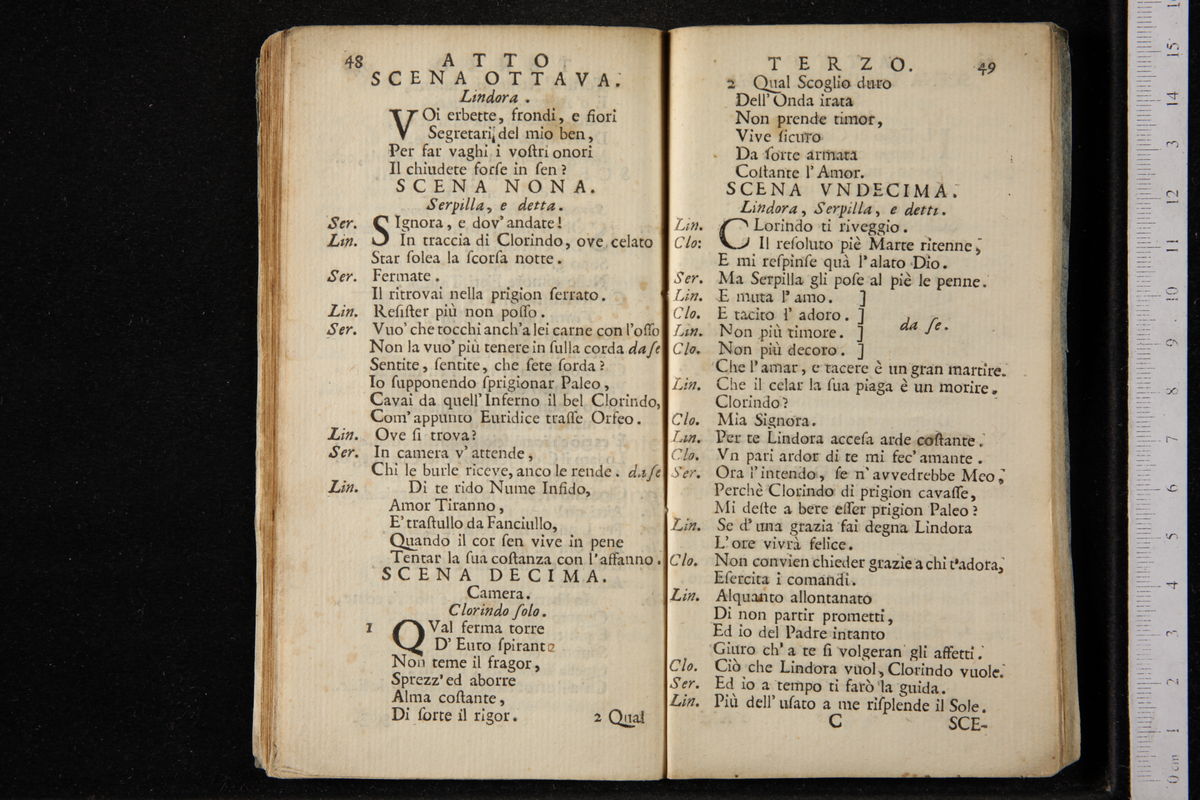 48 ATTO
SCENA OTTAVA.
Lindora.
VOi erbette, frondi, e fiori
Segretarj del mio ben,
Per far vaghi i voſtri onori
Il chiudete forſe in ſen?
SCENA NONA.
Serpilla, e detta.
Ser. SIgnora, e dov' andate!
Lin. In traccia di Clorindo, ove celato
Star ſolea la ſcorſa notte.
Ser. Fermate.
Il ritrovai nella prigion ſerrato.
Lin. Reſiſter più non poſſo.
Ser. Vuo' che tocchi anch'a lei carne con l'oſſo
Non la vuo' più tenere in ſulla corda da ſe
Sentite, ſentite, che ſete ſorda?
Io ſupponendo ſprigionar Paleo,
Cavai da quell' Inferno il bel Clorindo,
Com' appunto Euridice traſſe Orfeo.
Lin. Ove ſi trova?
Ser. In camera v' attende,
Chi le burle riceve, anco le rende. da ſe
Lin. Di te rido Nume Infido,
Amor Tiranno,
E' traſtullo da Fanciullo,
Quando il cor ſen vive in pene
Tentar la ſua coſtanza con l'affanno.
SCENA DECIMA.
Camera.
Clorindo ſolo.
1 QVal ferma torre
D' Euro ſpirante
Non teme il fragor,
Sprezz' ed aborre
Alma coſtante,
Di ſorte il rigor.
2 Qual
TERZO. 49
2 Qual Scoglio duro
Dell' Onda irata
Non prende timor,
Vive ſicuro
Da ſorte armata
Coſtante l' Amor.
SCENA VNDECIMA.
Lindora, Serpilla, e detti.
Lin. CLorindo ti riveggio.
Clo: Il reſoluto piè Marte ritenne,
E mi reſpinſe quà l'alato Dio.
Ser. Ma Serpilla gli poſe al piè le penne.
Lin. E muta l' amo. ]
Clo. E tacito l' adoro. ]
Lin. Non più timore. ] da ſe.
Clo. Non più decoro. ]
Che l' amar, e tacere è un gran martire.
Lin. Che il celar la ſua piaga è un morire.
Clorindo?
Clo. Mia Signora.
Lin. Per te Lindora acceſa arde coſtante.
Clo. Vn pari ardor di te mi fec' amante.
Ser. Ora l' intendo, ſe n' avvedrebbe Meo,
Perchè Clorindo di prigion cavaſſe,
Mi deſte a bere eſſer prigion Paleo?
Lin. Se d' una grazia fai degna Lindora
L' ore vivrà felice.
Clo. Non convien chieder grazie a chi t'adora,
Eſercita i comandi.
Lin. Alquanto allontanato
Di non partir prometti,
Ed io del Padre intanto
Giuro ch' a te ſi volgeran gli affetti.
Clo. Ciò che Lindora vuol, Clorindo vuole.
Ser. Ed io a tempo ti farò la guida.
Lin. Più dell' uſato a me riſplende il Sole.
C SCE-
0 cm 1 2 3 4 5 6 7 8 9 10 11 12 13 14 15